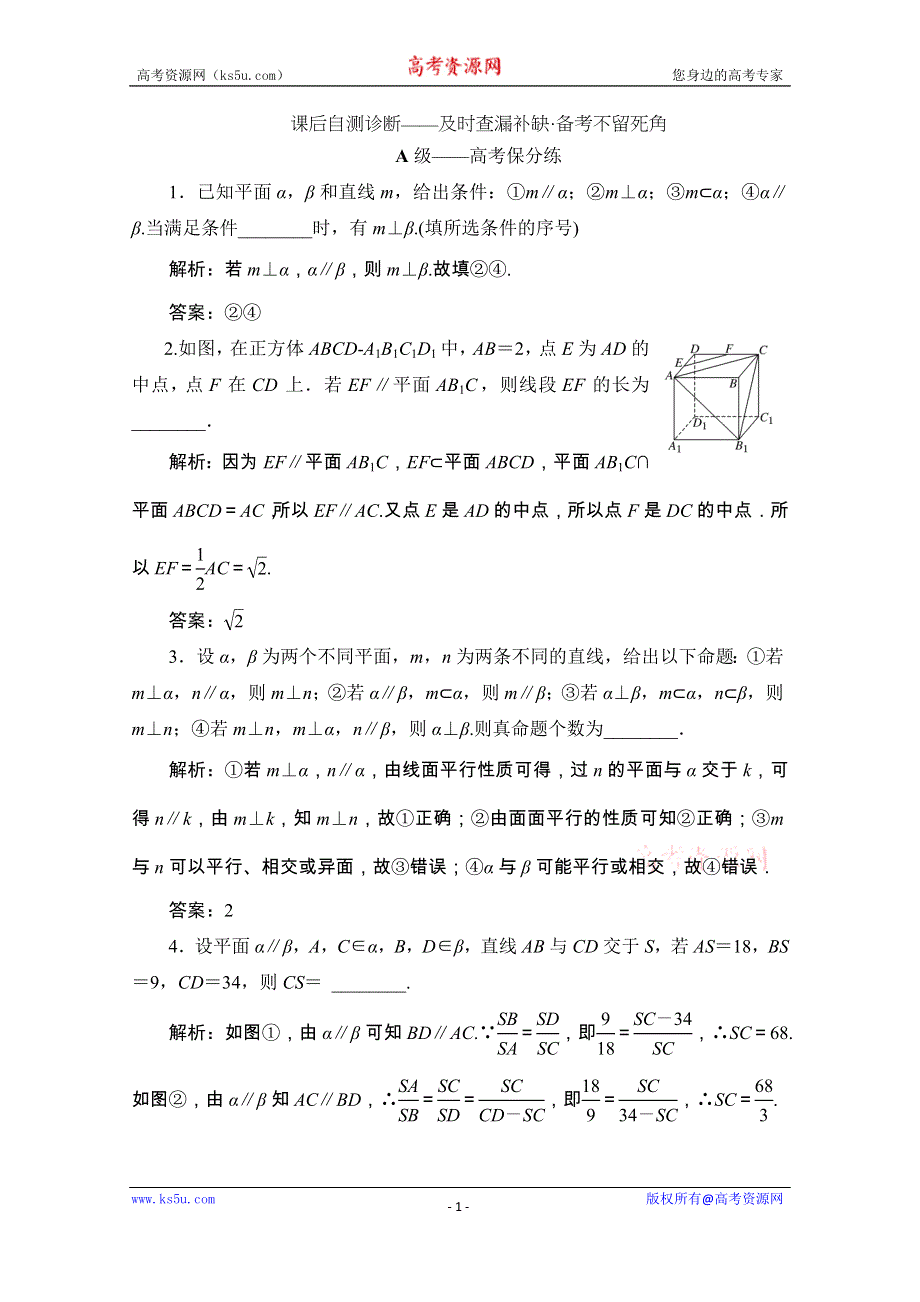 高考资源网（ks5u.com）
高考资源网
您身边的高考专家
课后自测诊断——及时查漏补缺·备考不留死角
A 级——高考保分练
1．已知平面 α，β 和直线 m，给出条件：①m∥α；②m⊥α；③m⊂α；④α∥
β.当满足条件________时，有 m⊥β.(填所选条件的序号)
解析：若 m⊥α，α∥β，则 m⊥β.故填②④.
答案：②④
2.如图，在正方体 ABCD-A₁B₁C₁D₁ 中，AB＝2，点 E 为 AD 的
中点，点 F 在 CD 上．若 EF∥平面 AB₁C，则线段 EF 的长为
________．
D F C
E
A B
D₁ C₁
A₁ B₁
解析：因为 EF∥平面 AB₁C，EF⊂平面 ABCD，平面 AB₁C∩
平面 ABCD＝AC，所以 EF∥AC.又点 E 是 AD 的中点，所以点 F 是 DC 的中点．所
以 EF＝1/2AC＝√2.
答案：√2
3．设 α，β 为两个不同平面，m，n 为两条不同的直线，给出以下命题：①若
m⊥α，n∥α，则 m⊥n；②若 α∥β，m⊂α，则 m∥β；③若 α⊥β，m⊂α，n⊂β，则
m⊥n；④若 m⊥n，m⊥α，n∥β，则 α⊥β.则真命题个数为________．
解析：①若 m⊥α，n∥α，由线面平行性质可得，过 n 的平面与 α 交于 k，可
得 n∥k，由 m⊥k，知 m⊥n，故①正确；②由面面平行的性质可知②正确；③m
与 n 可以平行、相交或异面，故③错误；④α 与 β 可能平行或相交，故④错误．
高考资源网
答案：2
4．设平面 α∥β，A，C∈α，B，D∈β，直线 AB 与 CD 交于 S，若 AS＝18，BS
＝9，CD＝34，则 CS＝ ________.
解析：如图①，由 α∥β 可知 BD∥AC.∵SB/SA＝SD/SC，即9/18＝(SC－34)/SC，∴SC＝68.
如图②，由 α∥β 知 AC∥BD，∴SA/SB＝SC/SD＝SC/(CD－SC)，即18/9＝SC/(34－SC)，∴SC＝68/3.
www.ks5u.com
- 1 -
版权所有@高考资源网